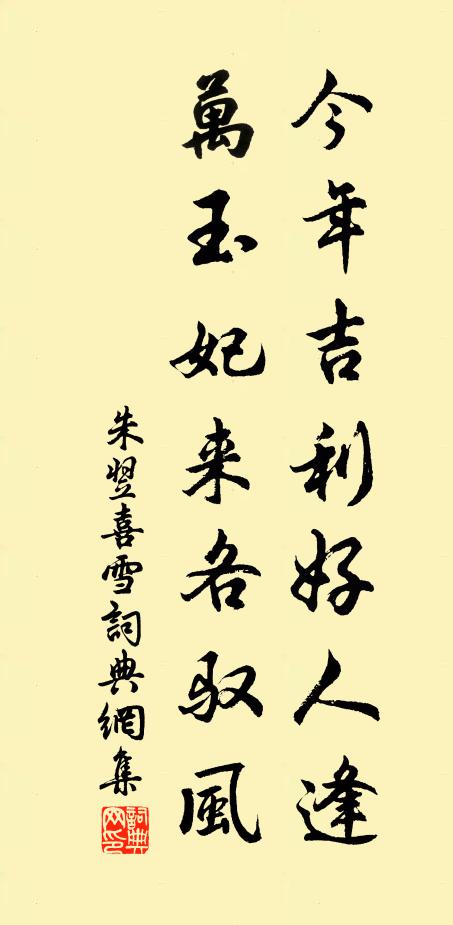 今年吉利好人逢
萬玉妃来各馭風
朱翌喜雪詞典網集
詞典网印